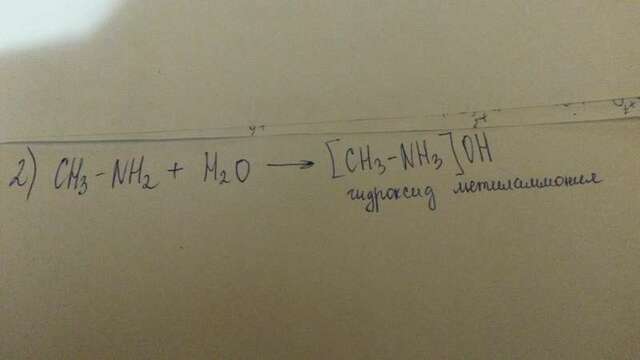 2) CH3-NH2 + H2O → [CH3-NH3]OH
гидроксид метиламмония